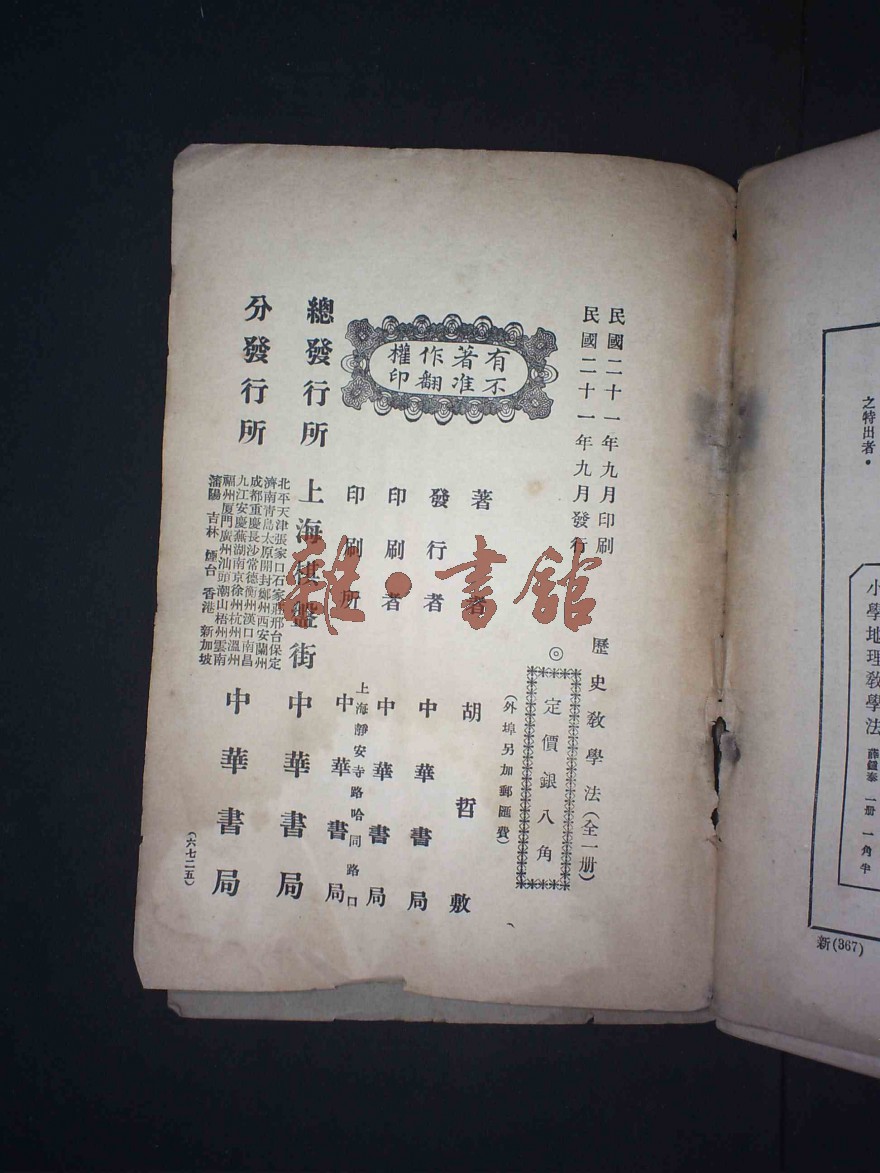 民國二十一年九月印刷
民國二十一年九月發行
歷史教學法（全一册）
◎定價銀八角
（外埠另加郵匯費）
有著作權
不准翻印
著者 胡哲敷
發行者 中華書局
印刷者 中華書局
上海靜安寺路哈同路口
印刷所 中華書局
總發行所 上海棋盤街 中華書局
分發行所
北平天津張家口石家莊邢台保定
濟南青島太原開封鄭州西安蘭州
成都重慶長沙常德衡州漢口南昌
九江安慶蕪湖南京徐州杭州溫州
福州厦門廣州汕頭潮州梧州雲南
瀋陽 吉林 煙台 香港 新加坡
中華書局
（六七二五）
雜·書館
之特出者。
小學地理教學法 薛鍾泰 一册 一角半
新(367)